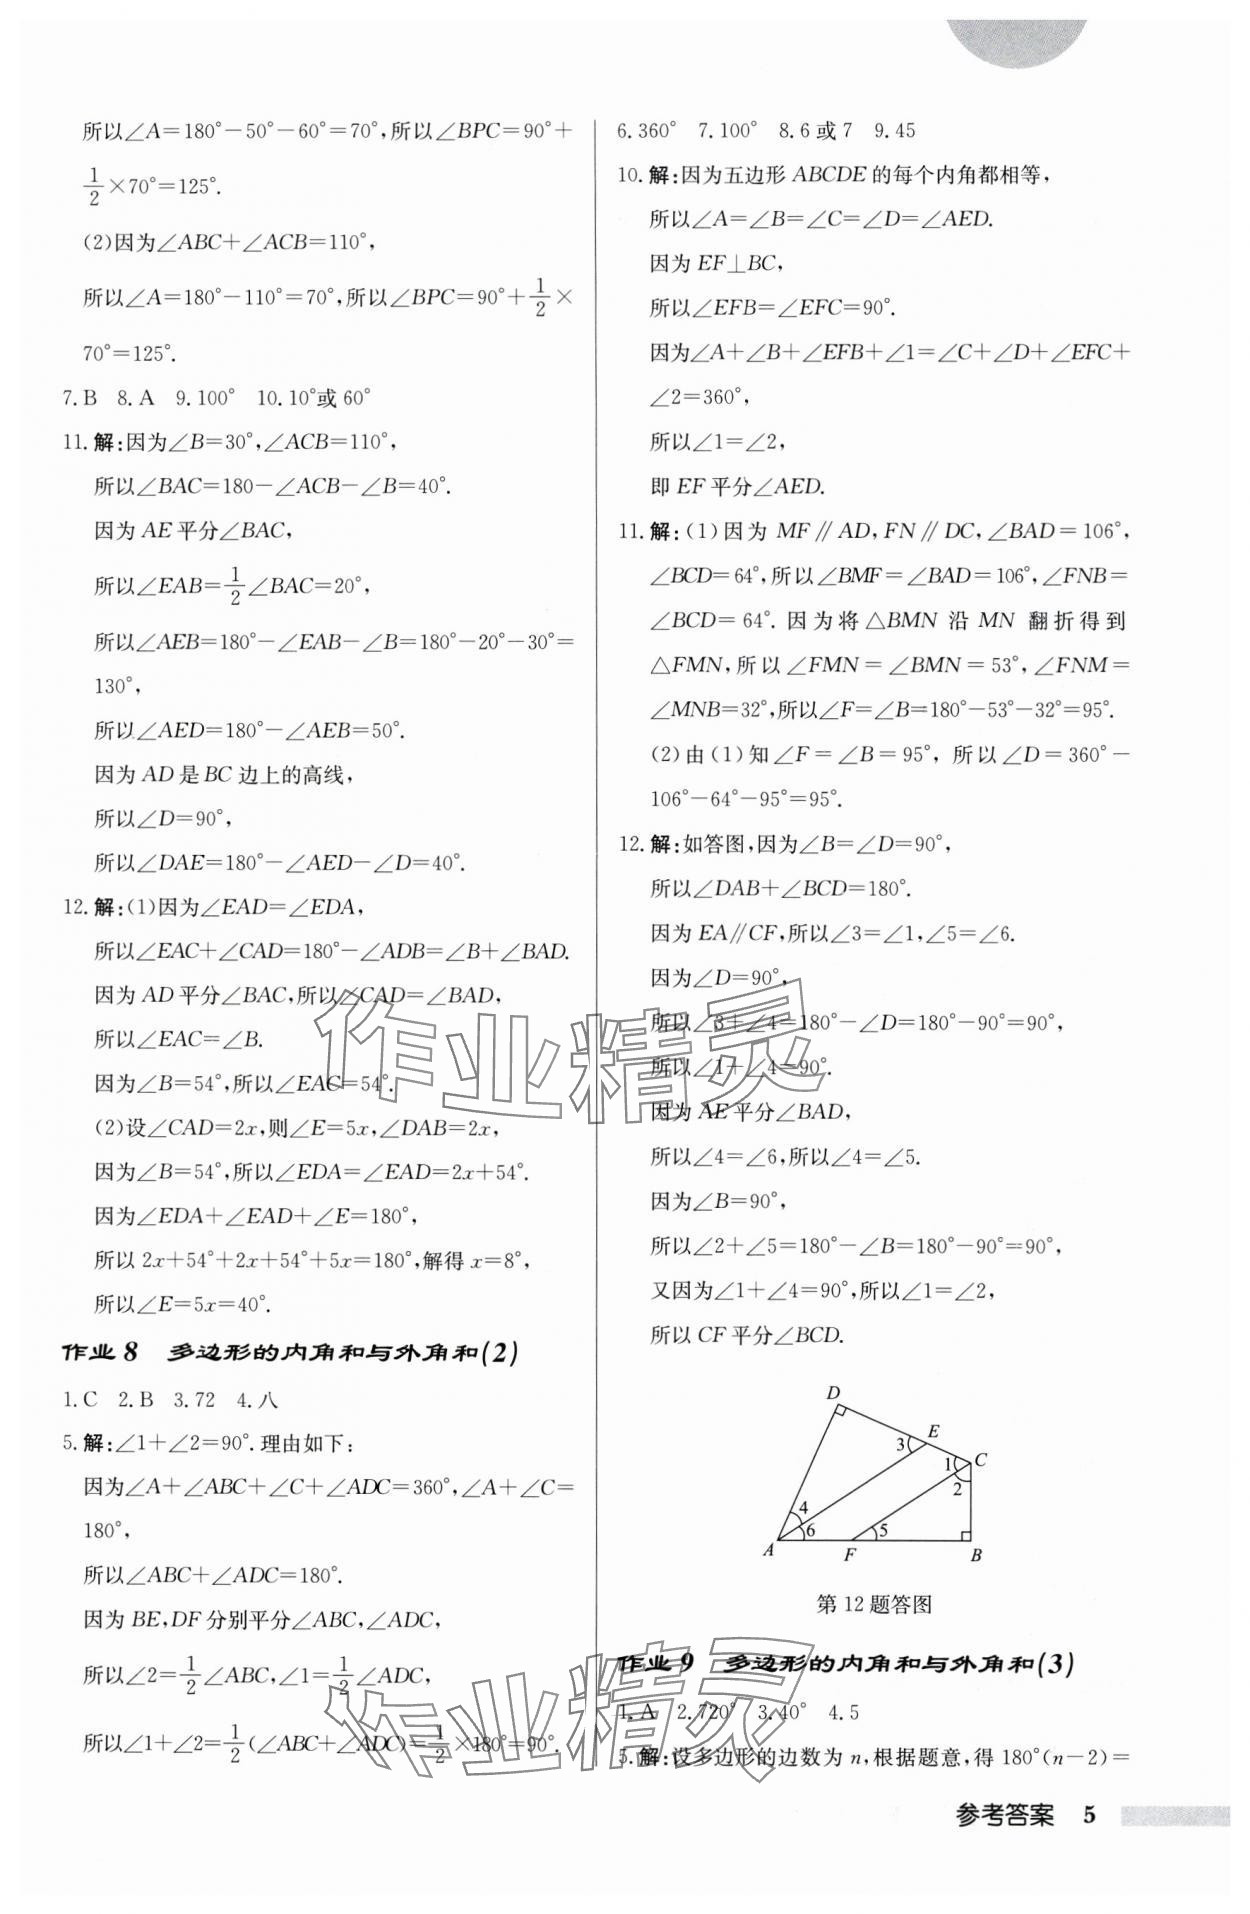 所以∠A=180°-50°-60°=70°,所以∠BPC=90°+
1/2×70°=125°.
(2)因为∠ABC+∠ACB=110°,
所以∠A=180°-110°=70°,所以∠BPC=90°+1/2×
70°=125°.
7.B 8.A 9.100° 10.10°或60°
11.解:因为∠B=30°,∠ACB=110°,
所以∠BAC=180-∠ACB-∠B=40°.
因为AE平分∠BAC,
所以∠EAB=1/2∠BAC=20°,
所以∠AEB=180°-∠EAB-∠B=180°-20°-30°=
130°,
所以∠AED=180°-∠AEB=50°.
因为AD是BC边上的高线,
所以∠D=90°,
所以∠DAE=180°-∠AED-∠D=40°.
12.解:(1)因为∠EAD=∠EDA,
所以∠EAC+∠CAD=180°-∠ADB=∠B+∠BAD.
因为AD平分∠BAC,所以∠CAD=∠BAD,
所以∠EAC=∠B.
因为∠B=54°,所以∠EAC=54°.
(2)设∠CAD=2x,则∠E=5x,∠DAB=2x,
因为∠B=54°,所以∠EDA=∠EAD=2x+54°.
因为∠EDA+∠EAD+∠E=180°,
所以2x+54°+2x+54°+5x=180°,解得x=8°,
所以∠E=5x=40°.
作业8 多边形的内角和与外角和(2)
1.C 2.B 3.72 4.八
5.解:∠1+∠2=90°.理由如下:
因为∠A+∠ABC+∠C+∠ADC=360°,∠A+∠C=
180°,
所以∠ABC+∠ADC=180°.
因为BE,DF分别平分∠ABC,∠ADC,
所以∠2=1/2∠ABC,∠1=1/2∠ADC,
所以∠1+∠2=1/2(∠ABC+∠ADC)=1/2×180°=90°.
6.360° 7.100° 8.6或7 9.45
10.解:因为五边形ABCDE的每个内角都相等,
所以∠A=∠B=∠C=∠D=∠AED.
因为EF⊥BC,
所以∠EFB=∠EFC=90°.
因为∠A+∠B+∠EFB+∠1=∠C+∠D+∠EFC+
∠2=360°,
所以∠1=∠2,
即EF平分∠AED.
11.解:(1)因为MF∥AD,FN∥DC,∠BAD=106°,
∠BCD=64°,所以∠BMF=∠BAD=106°,∠FNB=
∠BCD=64°.因为将△BMN沿MN翻折得到
△FMN,所以∠FMN=∠BMN=53°,∠FNM=
∠MNB=32°,所以∠F=∠B=180°-53°-32°=95°.
(2)由(1)知∠F=∠B=95°,所以∠D=360°-
106°-64°-95°=95°.
12.解:如答图,因为∠B=∠D=90°,
所以∠DAB+∠BCD=180°.
因为EA∥CF,所以∠3=∠1,∠5=∠6.
因为∠D=90°,
所以∠3+∠4=180°-∠D=180°-90°=90°,
所以∠1+∠4=90°.
因为AE平分∠BAD,
所以∠4=∠6,所以∠4=∠5.
因为∠B=90°,
所以∠2+∠5=180°-∠B=180°-90°=90°,
又因为∠1+∠4=90°,所以∠1=∠2,
所以CF平分∠BCD.
D
E
3
1
C
2
4
6
5
A
F
B
第12题答图
作业9 多边形的内角和与外角和(3)
1.A 2.720° 3.40° 4.5
5.解:设多边形的边数为n,根据题意,得180°(n-2)=
参考答案 5
作业精灵
作业精灵